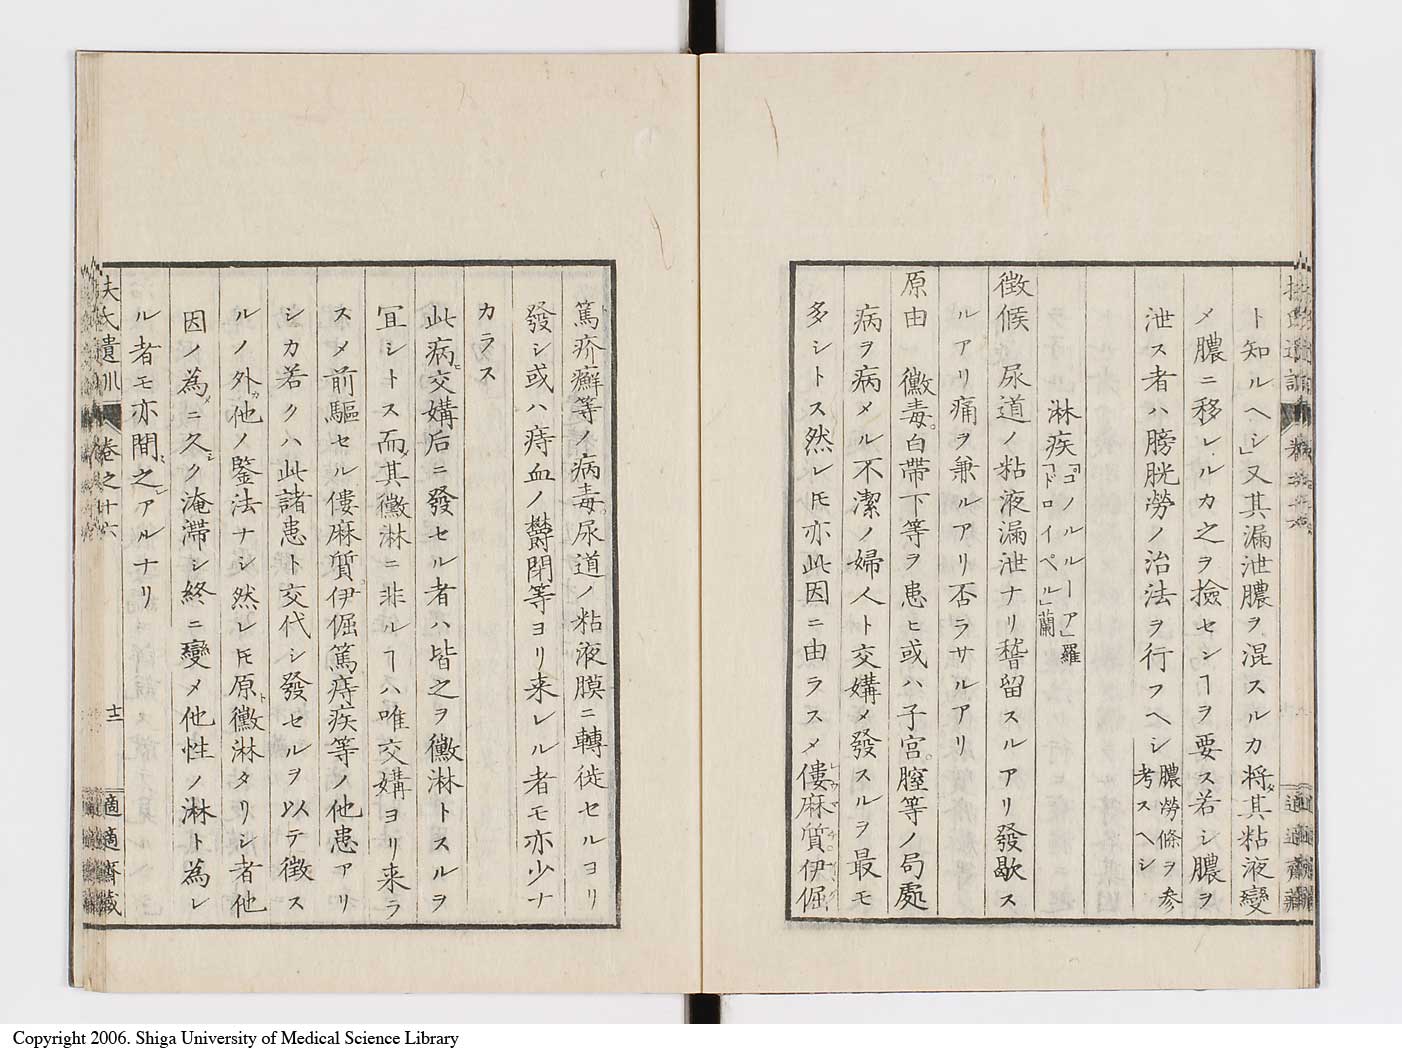 ト知ルヘシ」又其漏泄膿ヲ混スルカ将タ其粘液變
メ膿ニ移レルカ之ヲ撿セシヿヲ要ス若シ膿ヲ
泄ス者ハ膀胱勞ノ治法ヲ行フヘシ膿勞條ヲ参考スヘシ
淋疾「ゴノルルーア」羅「ドロイペル」蘭
徴候 尿道ノ粘液漏泄ナリ稽留スルアリ發歇ス
ルアリ痛ヲ兼ルアリ否ラサルアリ
原由 黴毒。白帯下等ヲ患ヒ或ハ子宮。膣等ノ局處
病ヲ病メル不潔ノ婦人ト交媾メ發スルヲ最モ
多シトス然レ𪜈亦此因ニ由ラスメ僂麻質伊倔
篤疥癬等ノ病毒尿道ノ粘液膜ニ轉徙セルヨリ
發シ或ハ痔血ノ欝閉等ヨリ来レル者モ亦少ナ
カラス
此病交媾后ニ發セル者ハ皆之ヲ黴淋トスルヲ
冝シトス而メ其黴淋ニ非ルヿハ唯交媾ヨリ来ラ
スメ前驅セル僂麻質。伊倔篤痔疾等ノ他患アリ
シカ若クハ此諸患ト交代シ發セルヲ以テ徴ス
ルノ外カ他ノ鑒法ナシ然レ𪜈原ト黴淋タリシ者他
因ノ為メニ久シク淹滞シ終ニ變メ他性ノ淋ト為レ
ル者モ亦間之アルナリ
扶氏遺訓 巻之廿六 十二 適適齋藏